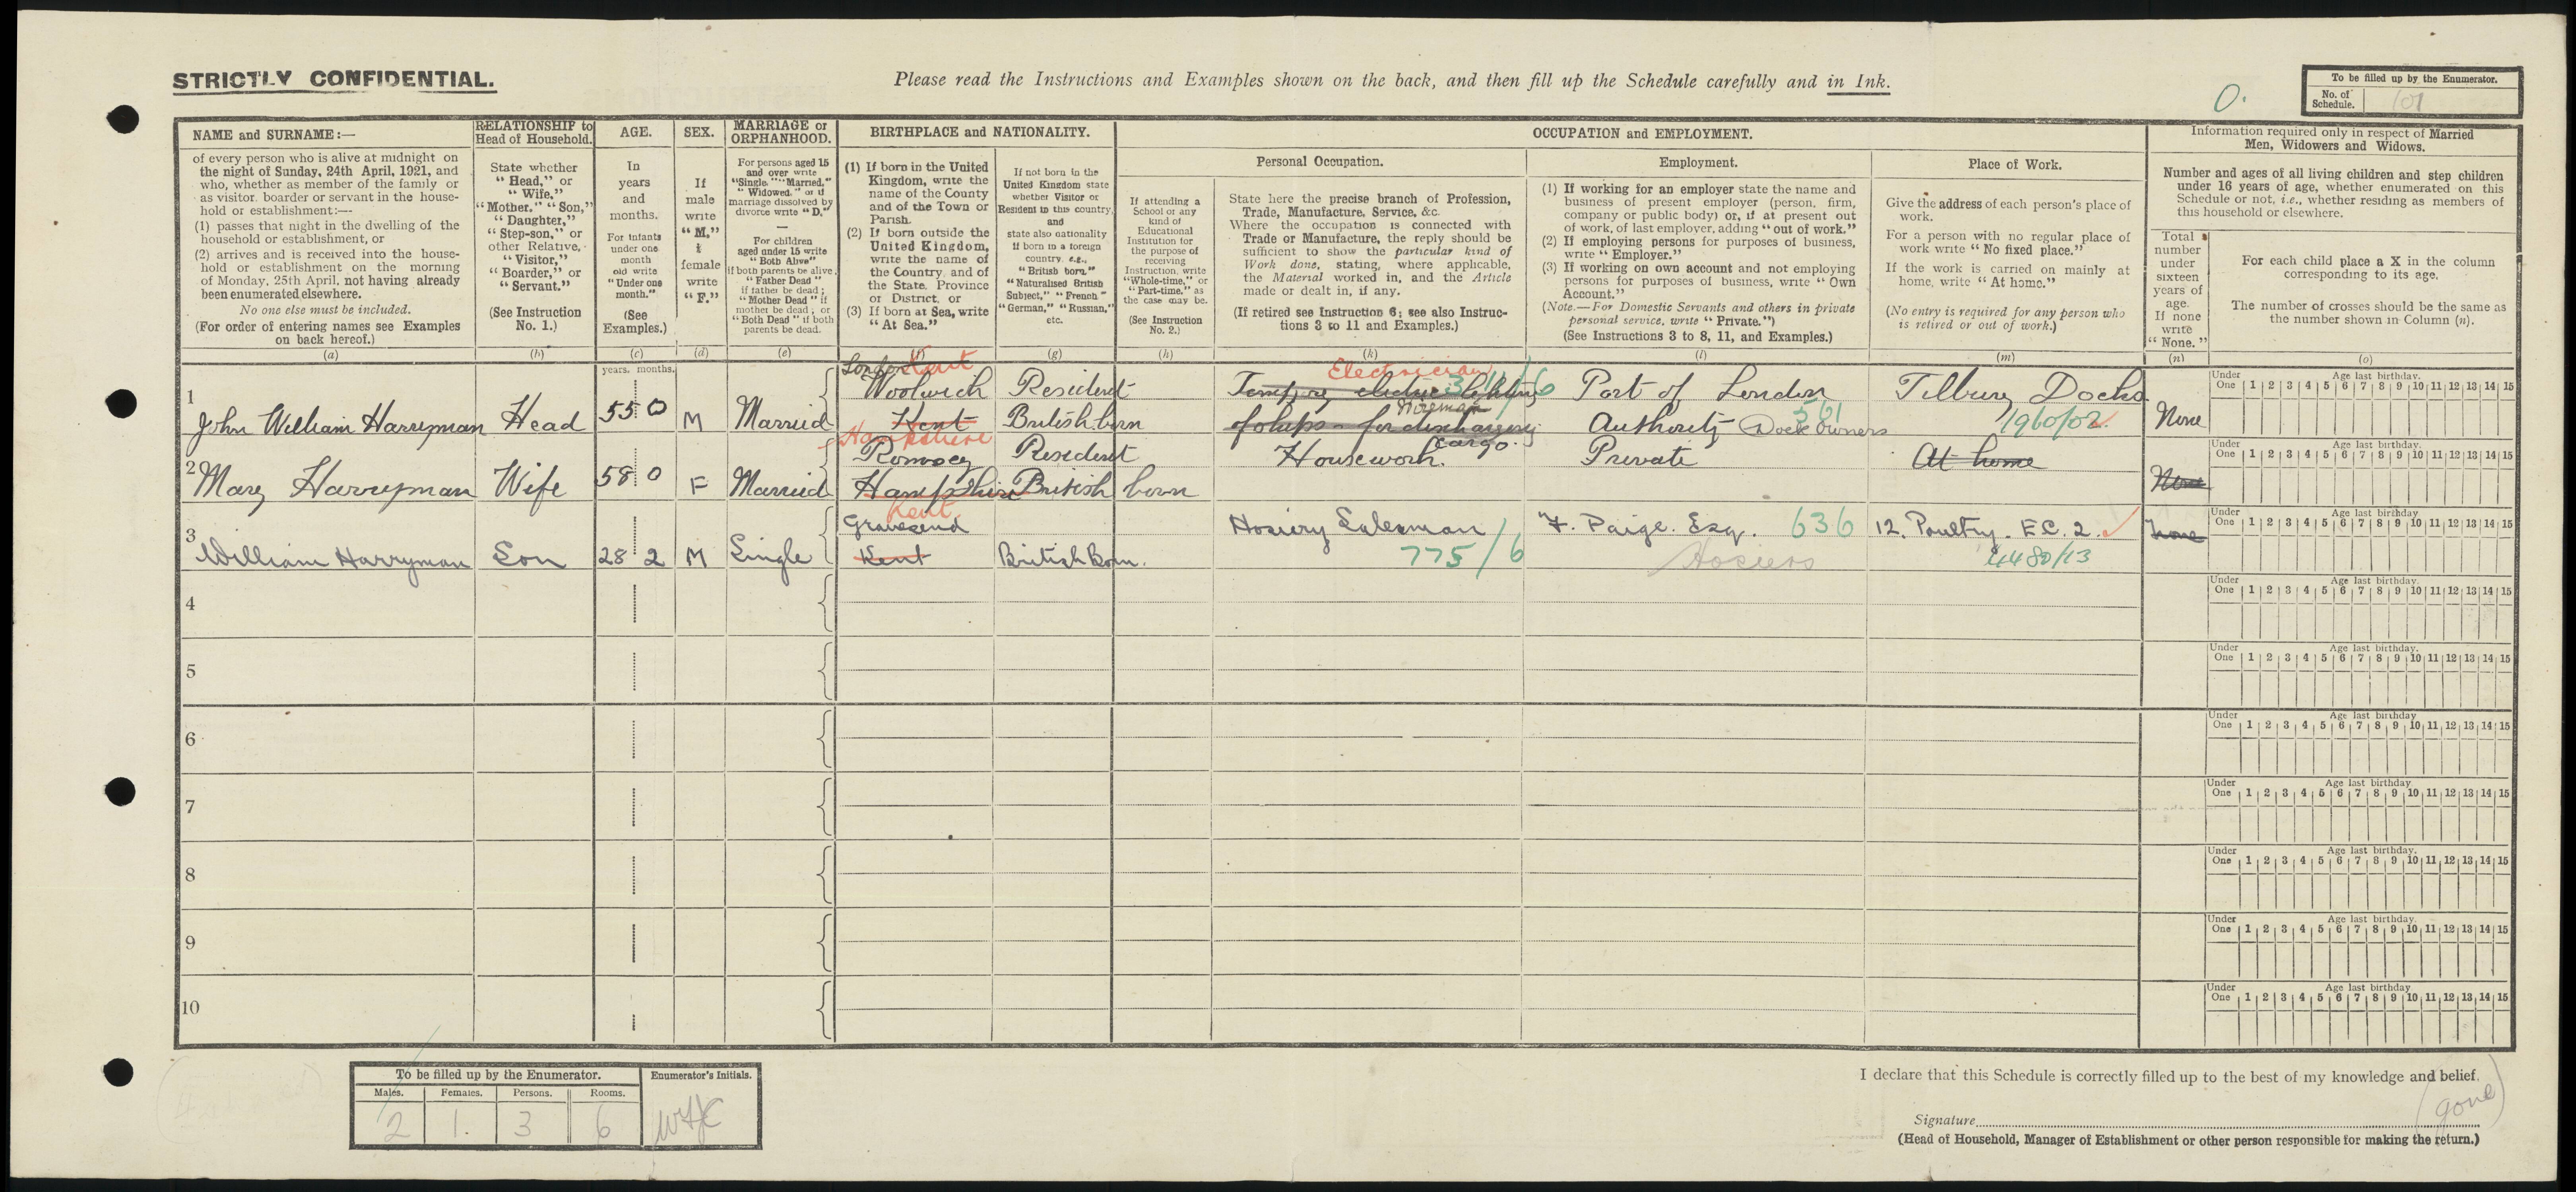 STRICTLY CONFIDENTIAL.
Please read the Instructions and Examples shown on the back, and then fill up the Schedule carefully and in Ink.
0.
To be filled up by the Enumerator.
No. of Schedule. 101
NAME and SURNAME:—
of every person who is alive at midnight on
the night of Sunday, 24th April, 1921, and
who, whether as member of the family or
as visitor, boarder or servant in the house-
hold or establishment:—
(1) passes that night in the dwelling of the
household or establishment, or
(2) arrives and is received into the house-
hold or establishment on the morning
of Monday, 25th April, not having already
been enumerated elsewhere.
No one else must be included.
(For order of entering names see Examples
on back hereof.)
(a)
RELATIONSHIP to
Head of Household.
State whether
"Head," or
"Wife,"
"Mother," "Son,"
"Daughter,"
"Step-son," or
other Relative,
"Visitor,"
"Boarder," or
"Servant."
(See Instruction
No. 1.)
(b)
AGE.
In
years
and
months.
For infants
under one
month
old write
"Under one
month."
(See
Examples.)
(c)
SEX.
If
male
write
"M."
if
female
write
"F."
(d)
MARRIAGE or
ORPHANHOOD.
For persons aged 15
and over write
"Single," "Married,"
"Widowed," or if
marriage dissolved by
divorce write "D."
For children
aged under 15 write
"Both Alive"
if both parents be alive,
"Father Dead"
if father be dead;
"Mother Dead" if
mother be dead; or
"Both Dead" if both
parents be dead.
(e)
BIRTHPLACE and NATIONALITY.
(1) If born in the United
Kingdom, write the
name of the County
and of the Town or
Parish.
(2) If born outside the
United Kingdom,
write the name of
the Country, and of
the State, Province
or District, or
(3) If born at Sea, write
"At Sea."
(f)
If not born in the
United Kingdom state
whether Visitor or
Resident in this country,
and
state also nationality
if born in a foreign
country, e.g.,
"British born"
"Naturalised British
Subject," "French"
"German," "Russian,"
etc.
(g)
OCCUPATION and EMPLOYMENT.
If attending a
School or any
kind of
Educational
Institution for
the purpose of
receiving
Instruction, write
"Whole-time," or
"Part-time," as
the case may be.
(See Instruction
No. 2.)
(h)
Personal Occupation.
State here the precise branch of Profession,
Trade, Manufacture, Service, &c.
Where the occupation is connected with
Trade or Manufacture, the reply should be
sufficient to show the particular kind of
Work done, stating, where applicable,
the Material worked in, and the Article
made or dealt in, if any.
(If retired see Instruction 6; see also Instruc-
tions 3 to 11 and Examples.)
(k)
Employment.
(1) If working for an employer state the name and
business of present employer (person, firm,
company or public body) or, if at present out
of work, of last employer, adding "out of work."
(2) If employing persons for purposes of business,
write "Employer."
(3) If working on own account and not employing
persons for purposes of business, write "Own
Account."
(Note.—For Domestic Servants and others in private
personal service, write "Private.")
(See Instructions 3 to 8, 11, and Examples.)
(l)
Place of Work.
Give the address of each person's place of
work.
For a person with no regular place of
work write "No fixed place."
If the work is carried on mainly at
home, write "At home."
(No entry is required for any person who
is retired or out of work.)
(m)
Information required only in respect of Married
Men, Widowers and Widows.
Number and ages of all living children and step children
under 16 years of age, whether enumerated on this
Schedule or not, i.e., whether residing as members of
this household or elsewhere.
Total
number
under
sixteen
years of
age.
If none
write
"None."
(n)
For each child place a X in the column
corresponding to its age.
The number of crosses should be the same as
the number shown in Column (n).
(o)
years. months.
1 John William Harryman Head 55 0 M Married London Kent Woolwich Kent Resident British born Electrician for discharging cargo. Port of London Authority Dock Owners 361 Tilbury Docks 1960/02 None
Under One 1 2 3 4 5 6 7 8 9 10 11 12 13 14 15 Age last birthday.
2 Mary Harryman Wife 58 0 F Married Hampshire Romsey Hampshire Resident British born Housework. Private At home None
Under One 1 2 3 4 5 6 7 8 9 10 11 12 13 14 15 Age last birthday.
3 William Harryman Son 28 2 M Single Kent Gravesend Kent British Born. Hosiery Salesman 775/6 F. Paige. Esq. 636 Hosiers 12. Poultry. E.C. 2. None
Under One 1 2 3 4 5 6 7 8 9 10 11 12 13 14 15 Age last birthday.
4
Under One 1 2 3 4 5 6 7 8 9 10 11 12 13 14 15 Age last birthday.
5
Under One 1 2 3 4 5 6 7 8 9 10 11 12 13 14 15 Age last birthday.
6
Under One 1 2 3 4 5 6 7 8 9 10 11 12 13 14 15 Age last birthday
7
Under One 1 2 3 4 5 6 7 8 9 10 11 12 13 14 15 Age last birthday
8
Under One 1 2 3 4 5 6 7 8 9 10 11 12 13 14 15 Age last birthday.
9
Under One 1 2 3 4 5 6 7 8 9 10 11 12 13 14 15 Age last birthday.
10
Under One 1 2 3 4 5 6 7 8 9 10 11 12 13 14 15 Age last birthday
To be filled up by the Enumerator.
Males. Females. Persons. Rooms.
2 1. 3 6
Enumerator's Initials.
WHC
I declare that this Schedule is correctly filled up to the best of my knowledge and belief.
(gone)
Signature
(Head of Household, Manager of Establishment or other person responsible for making the return.)